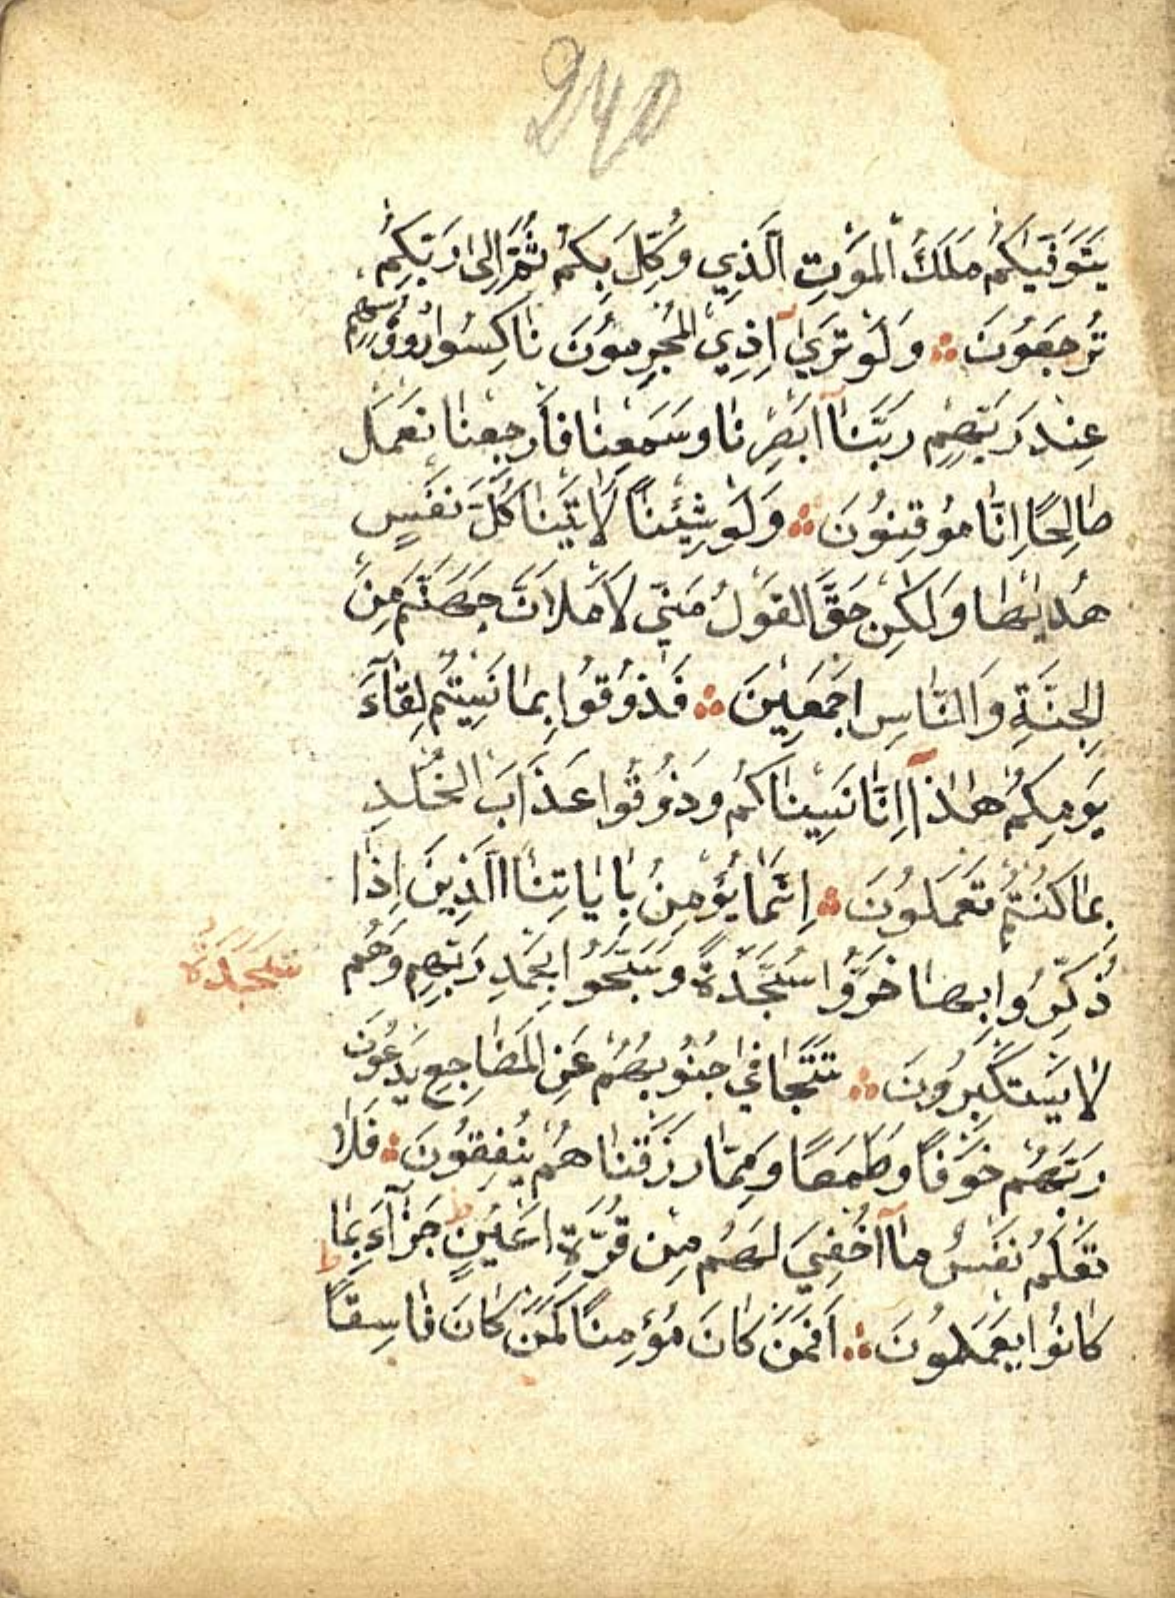 240
يَتَوَفّٰيكُمْ مَلَكُ الْمَوْتِ الَّذِي وُكِّلَ بِكُمْ ثُمَّ اِلٰى رَبِّكُمْ
تُرْجَعُونَ ۞ وَلَوْ تَرَىٰٓ اِذِي الْمُجْرِمُونَ نَاكِسُوا رُؤُسِهِمْ
عِنْدَ رَبِّهِمْ رَبَّنَآ اَبْصَرْنَا وَسَمِعْنَا فَارْجِعْنَا نَعْمَلْ
صَالِحًا اِنَّا مُوقِنُونَ ۞ وَلَوْ شِئْنَا لَاٰتَيْنَا كُلَّ نَفْسٍ
هُدٰيهَا وَلٰكِنْ حَقَّ الْقَوْلُ مِنِّي لَاَمْلَاَنَّ جَهَنَّمَ مِنَ
الْجِنَّةِ وَالنَّاسِ اَجْمَعِينَ ۞ فَذُوقُوا بِمَا نَسِيتُمْ لِقَآءَ
يَوْمِكُمْ هٰذَآ اِنَّا نَسِينَاكُمْ وَذُوقُوا عَذَابَ الْخُلْدِ
بِمَا كُنْتُمْ تَعْمَلُونَ ۞ اِنَّمَا يُؤْمِنُ بِاٰيَاتِنَا الَّذِينَ اِذَا
ذُكِّرُوا بِهَا خَرُّوا سُجَّدَةً وَسَبَّحُوا بِحَمْدِ رَبِّهِمْ وَهُمْ
سَجْدَةٌ
لَا يَسْتَكْبِرُونَ ۞ تَتَجَافٰى جُنُوبُهُمْ عَنِ الْمَضَاجِعِ يَدْعُونَ
رَبَّهُمْ خَوْفًا وَطَمَعًا وَمِمَّا رَزَقْنَاهُمْ يُنْفِقُونَ ۞ فَلَا
تَعْلَمُ نَفْسٌ مَآ اُخْفِيَ لَهُمْ مِنْ قُرَّةِ اَعْيُنٍ ط جَزَآءً بِمَا
كَانُوا يَعْمَلُونَ ۞ اَفَمَنْ كَانَ مُؤْمِنًا كَمَنْ كَانَ فَاسِقًا ط